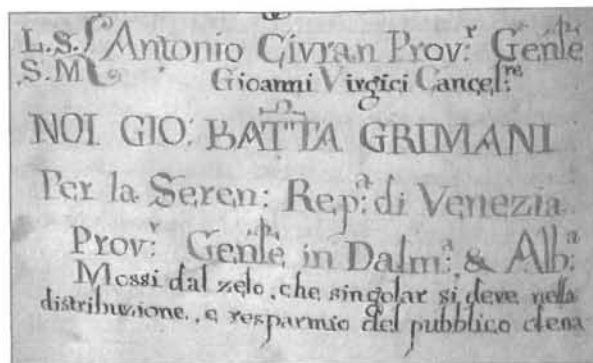 L.S. Antonio Civran Prov:r Gen̄le
S.M Gioanni Virgici Cancel:re
NOI GIO: BATTA GRIMANI
Per la Seren: Rep:a di Venezia
Prov:r Gen̄le in Dalm:a & Alb:a
Mossi dal zelo, che singolar si deve nella
distribuzione, e resparmio del pubblico dena